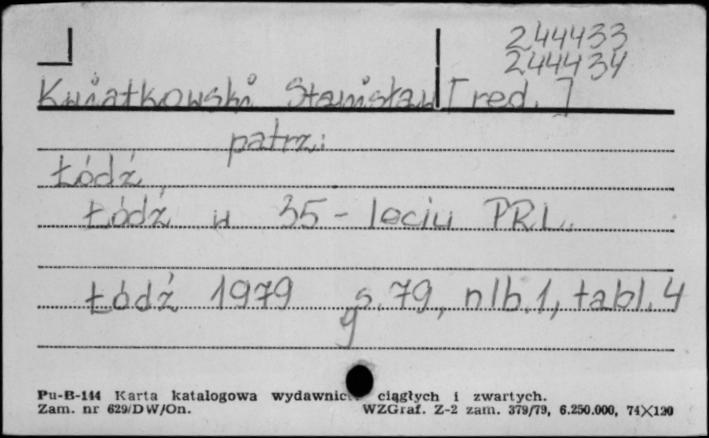 244433
244434
Kwiatkowski Stanisław [red.]
patrz:
Łódź
Łódź w 35-leciu PRL.
Łódź 1979 s. 79, nlb. 1, tabl. 4
g
Pu-B-144 Karta katalogowa wydawnic ciągłych i zwartych.
Zam. nr 629/DW/On. WZGraf. Z-2 zam. 379/79, 6.250.000, 74×120